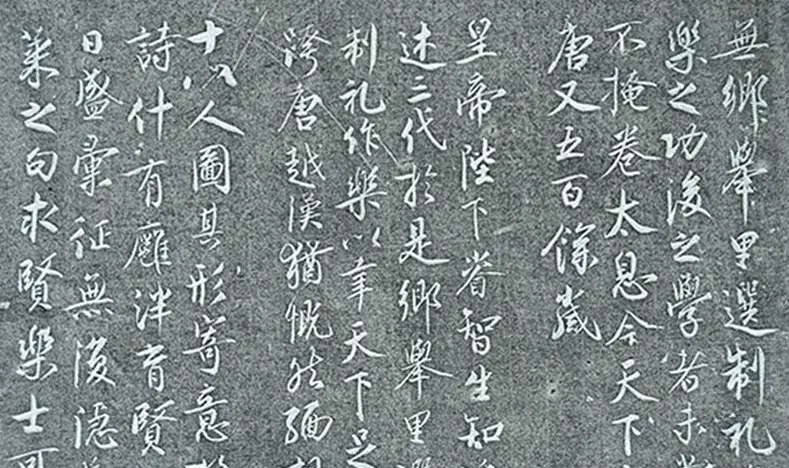 無鄉舉里選制礼
樂之功後之學者未嘗
不掩卷太息今天下
唐又五百餘歲
皇帝陛下睿智生知
述三代於是鄉舉里選
制礼作樂以幸天下足
跨唐越漢猶慨然緬
十八人圖其形寄意
詩什有廱泮育賢
日盛彙征無復隱
萊之句求賢樂士可